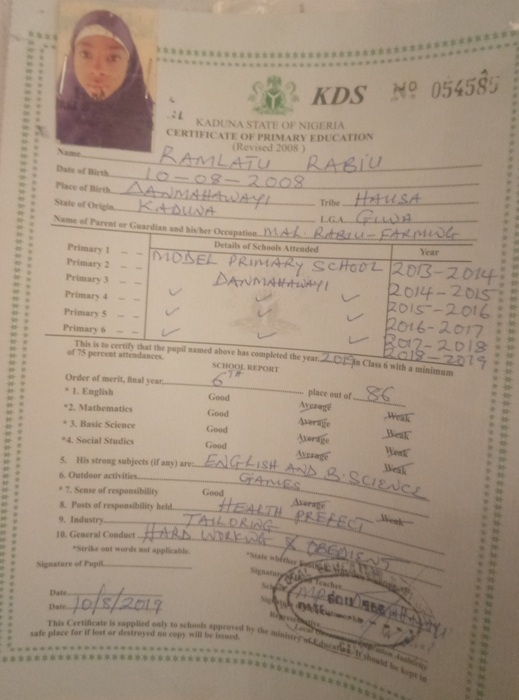 KDS Nº 054585
KADUNA STATE OF NIGERIA
CERTIFICATE OF PRIMARY EDUCATION
(Revised 2008)
Name RAMLATU RABIU
Date of Birth 10-08-2008
Place of Birth DANMAHAWAYI Tribe HAUSA
State of Origin KADUNA L.G.A. GIWA
Name of Parent or Guardian and his/her Occupation MAL. RABIU-FARMING
Details of Schools Attended Year
Primary 1 MODEL PRIMARY SCHOOL 2013-2014
Primary 2 DANMAHAWAYI 2014-2015
Primary 3 2015-2016
Primary 4 2016-2017
Primary 5 2017-2018
Primary 6 2018-2019
This is to certify that the pupil named above has completed the year 2019 in Class 6 with a minimum
of 75 percent attendances.
SCHOOL REPORT
Order of merit, final year 6TH place out of 86
* 1. English Good Average Weak
*2. Mathematics Good Average Weak
* 3. Basic Science Good Average Weak
*4. Social Studies Good Average Weak
5. His strong subjects (if any) are: ENGLISH AND B. SCIENCE
6. Outdoor activities GAMES
* 7. Sense of responsibility Good Average Weak
8. Posts of responsibility held HEALTH PREFECT
9. Industry TAILORING
10. General Conduct HARD WORKING & OBEDIENT
*Strike out words not applicable.
*State whether
Signature of Pupil
Date
Date 10/8/2019
This Certificate is supplied only to schools approved by the ministry of Education. It should be kept in
safe place for if lost or destroyed no copy will be issued.